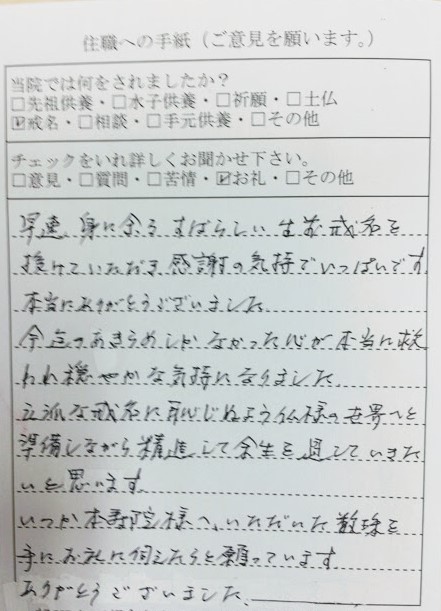 住職への手紙（ご意見を願います。）
当院では何をされましたか？
□先祖供養・□水子供養・□祈願・□土仏
☑戒名・□相談・□手元供養・□その他
チェックをいれ詳しくお聞かせ下さい。
□意見・□質問・□苦情・☑お礼・□その他
早速、身に余るすばらしい生前戒名を
授けていただき感謝の気持でいっぱいです
本当にありがとうございました
今迄のあきらめしかなかった心が本当に救
われ穏やかな気持になりました
立派な戒名に恥じぬよう仏様の世界へと
準備しながら精進して余生を過していきた
いと思います
いつか本寿院様へ、いただいた数珠を
手にお礼に伺えたらと願っています
ありがとうございました。